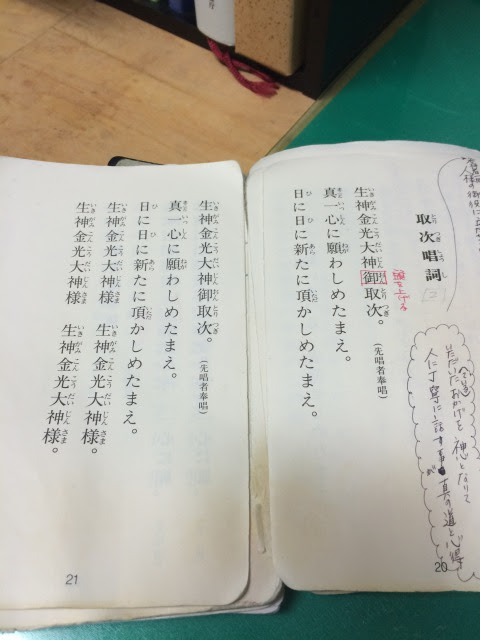 取次唱詞
頭を上げる
生神金光大神御取次。
(先唱者奉唱)
真一心に願わしめたまえ。
日に日に新たに頂かしめたまえ。
いただいたおかげを 神心となりて
人に丁寧に話す事が 真の道と心得
20
生神金光大神御取次。
(先唱者奉唱)
真一心に願わしめたまえ。
日に日に新たに頂かしめたまえ。
生神金光大神様 生神金光大神様。
生神金光大神様 生神金光大神様。
21